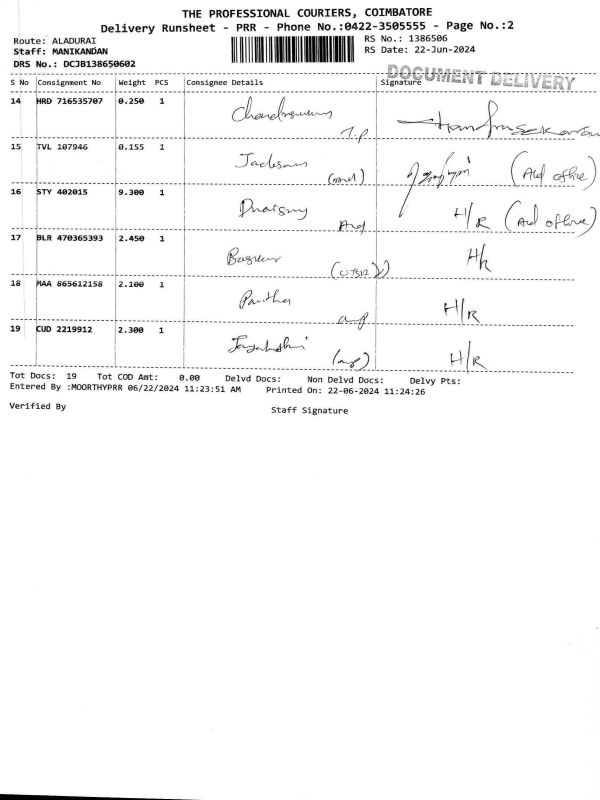 THE PROFESSIONAL COURIERS, COIMBATORE
Delivery Runsheet - PRR - Phone No.:0422-3505555 - Page No.:2
Route: ALADURAI
RS No.: 1386506
Staff: MANIKANDAN
RS Date: 22-Jun-2024
DRS No.: DCJB138650602
DOCUMENT DELIVERY
S No Consignment No Weight PCS Consignee Details Signature
14 HRD 716535707 0.250 1
T.P
15 TVL 107946 0.155 1 Jackson
16 STY 402015 9.300 1 H/R
17 BLR 470365393 2.450 1 H/R
18 MAA 865612158 2.100 1 H/R
19 CUD 2219912 2.300 1 H/R
Tot Docs: 19 Tot COD Amt: 0.00 Delvd Docs: Non Delvd Docs: Delvy Pts:
Entered By :MOORTHYPRR 06/22/2024 11:23:51 AM Printed On: 22-06-2024 11:24:26
Verified By
Staff Signature